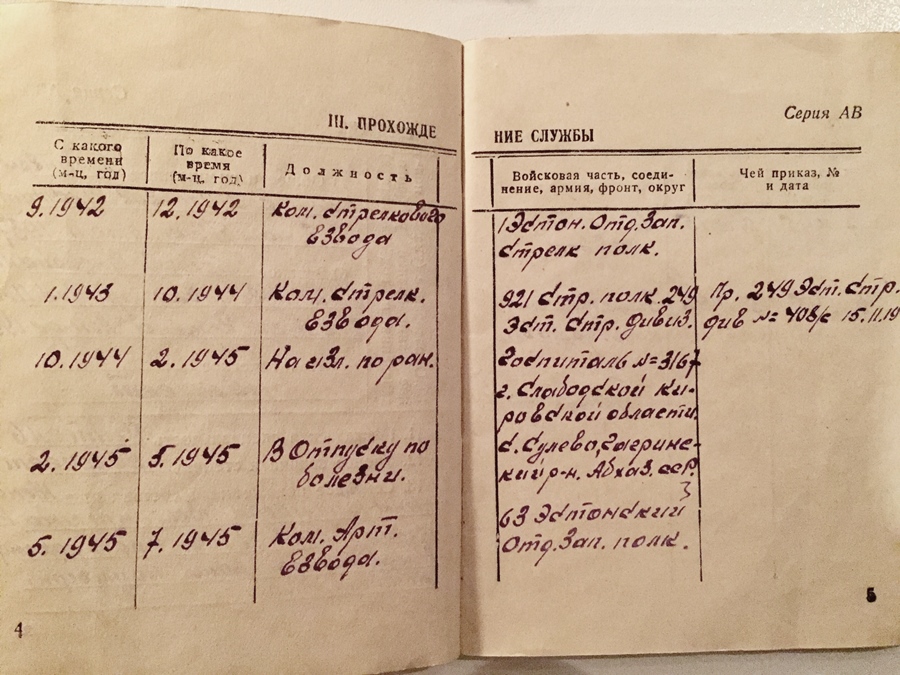 III. ПРОХОЖДЕ
С какого времени (м-ц, год)
По какое время (м-ц, год)
Должность
9.1942 12.1942 Ком. стрелкового
взвода
1.1943 10.1944 Ком. стрелк.
взвода.
10.1944 2.1945 На изл. по ран.
2.1945 5.1945 В отпуску по
болезни.
5.1945 7.1945 Ком. Арт.
взвода.
4
Серия АВ
НИЕ СЛУЖБЫ
Войсковая часть, соеди-
нение, армия, фронт, округ
Чей приказ, №
и дата
1 Эстон. Отд. Зап.
стрелк полк.
921 стр. полк. 249 Пр. 249 Эст. стр.
Эст. стр. дивиз. див №= 408/с 15.11.19
Госпиталь №=3167
г. Слабодской Ки-
ровской области.
с. Сулево, Гагринс-
кий р-н. Абхаз. сср.
63 Эстонский
Отд. Зап. полк.
5